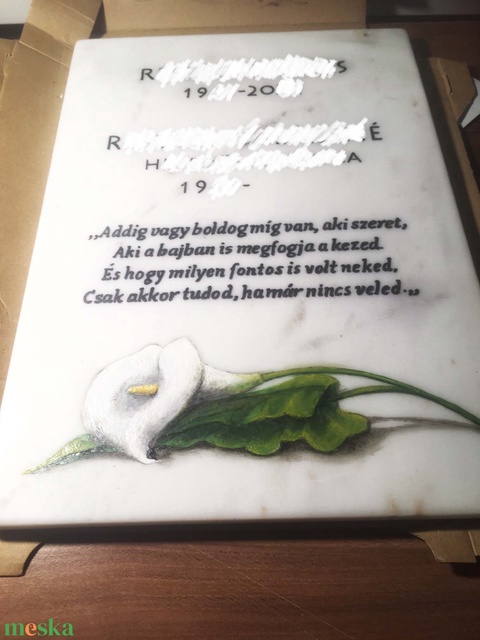 19 -20
19 -
„Addig vagy boldog míg van, aki szeret,
Aki a bajban is megfogja a kezed.
És hogy milyen fontos is volt neked,
Csak akkor tudod, ha már nincs veled.„
meska